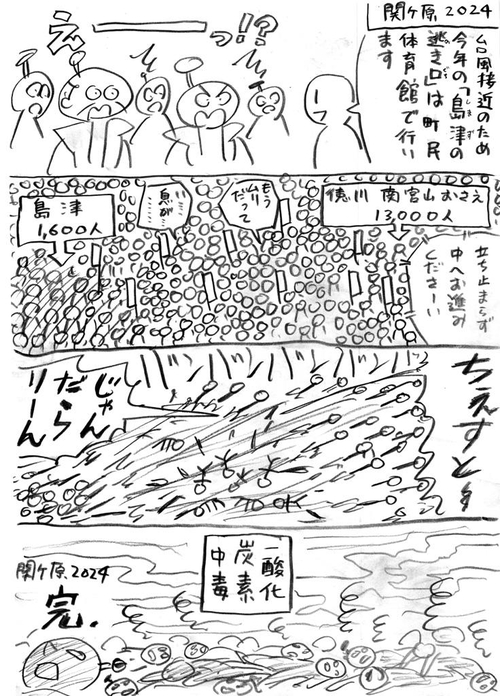 関ヶ原2024
台風接近のため
今年の「島津の
退き口」は町民
体育館で行い
ます
え
ーーっ!?
徳川 南宮山おさえ
13,000人
もう
ムリ
だって
息が…
島津
1,600人
立ち止まらず
中へお進み
くださーい
ちぇすとー
バンバンバンバン
じゃん
だら
りーん
一酸化
炭素
中毒
関ヶ原2024
完.